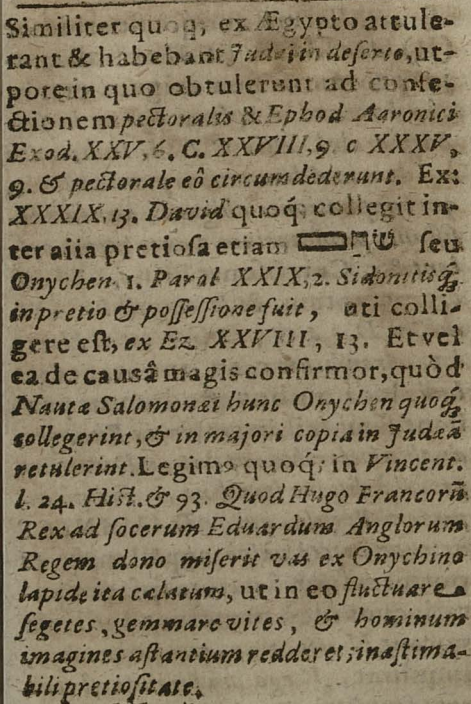 Similiter quoq;, ex Ægypto attule-
rant & habebant Judæi in deserto, ut-
pote in quo obtulerunt ad confe-
ctionem pectoralis & Ephod Aaronici
Exod. XXV, 6. C. XXVIII, 9 c XXXV,
9. & pectorale eô circumdederunt. Ex:
XXXIX, 13. David quoq́; collegit in-
ter alia pretiosa etiam שהם seu
Onychen 1. Paral XXIX, 2. Sidoniisq́;
in pretio & possessione fuit, uti colli-
gere est, ex Ez. XXVIII, 13. Et vel
ea de causâ magis confirmor, quòd
Nautæ Salomonæi hunc Onychen quoq́;
collegerint, & in majori copia in Judæā
retulerint. Legimꝰ quoq́; in Vincent.
l. 24. Hist. & 93. Quod Hugo Francorū
Rex ad socerum Eduardum Anglorum
Regem dono miserit vas ex Onychino
lapide ita cælatum, ut in eo fluctuare
segetes, gemmare vites, & hominum
imagines astantium redderet; inæstima-
bili pretiositate.